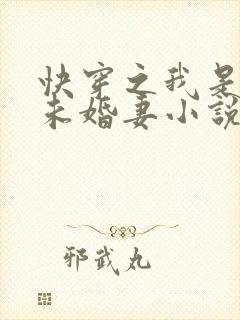 快穿之我是
未婚妻小説
邪武丸